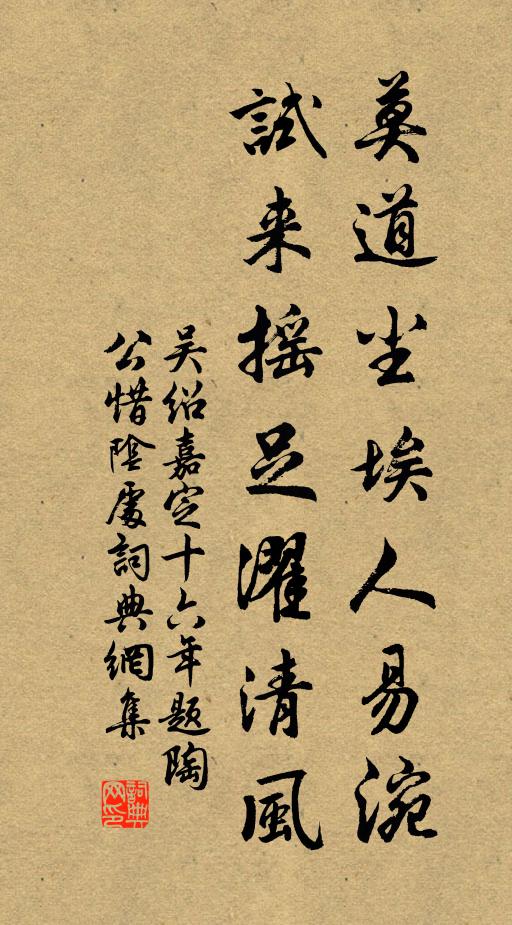 莫道尘埃人易涴
試来摇足濯清風
吴绍嘉定十六年题陶
公惜陰處詞典網集
詞典网印